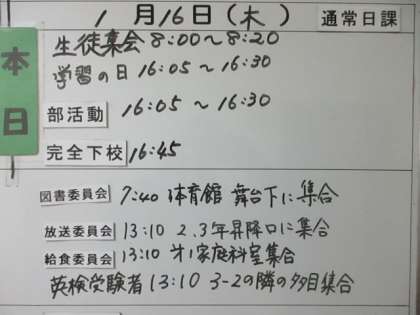 1月16日(木) 通常日課
本日
生徒集会 8:00～8:20
学習の日 16:05～16:30
部活動 16:05～16:30
完全下校 16:45
図書委員会 7:40 体育館 舞台下に集合
放送委員会 13:10 2、3年昇降口に集合
給食委員会 13:10 才1家庭科室集合
英検受験者 13:10 3-2の隣の多目集合